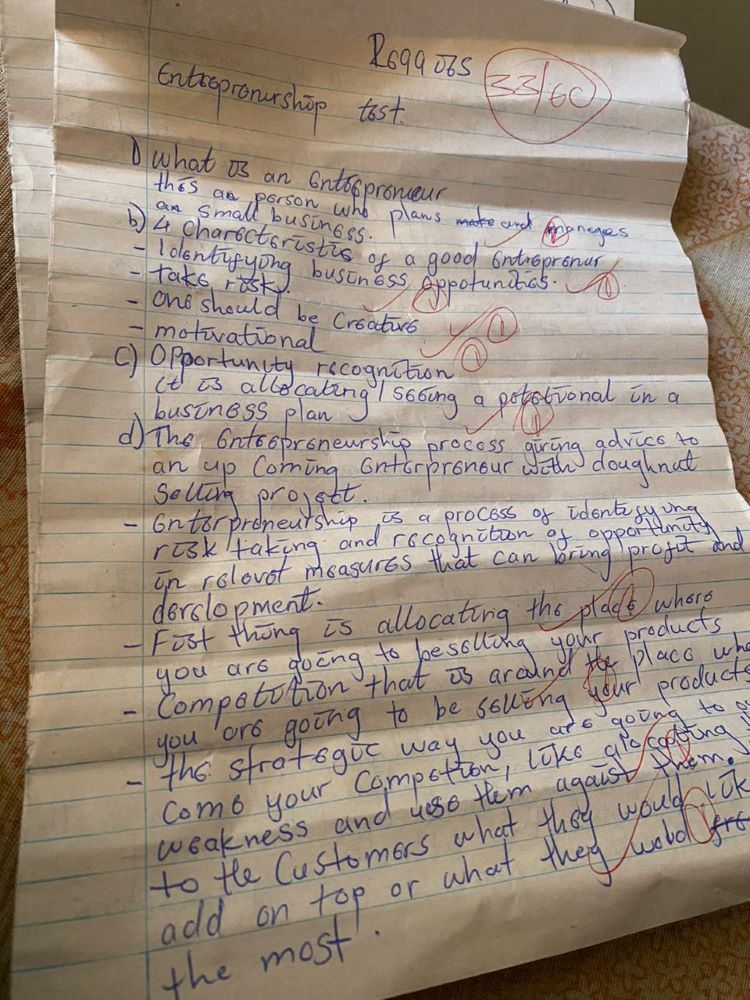 33/60
Entrepronurship test.
1) what is an Entrepreneur
this is a person who plans and manages
an small business.
b) 4 characteristic of a good Entreprenur
- Identifying business oppotunities.
- take risk.
- one should be Creative
- motivational
c) Opportunity recognition
it is allocating / seeing a potetional in a
business plan
d) The Entrepreneurship process giving advice to
an up Coming Enterpreneur with doughnut
Selling projett.
- Enterpreneurship is a process of identifying
risk taking and recognition of opportunity
in relevet measures that can bring profit and
development.
- First thing is allocating the place where
you are going to be selling your products
- Competition that is around the place whe
you are going to be selling your products
- the strategic way you are going to o
come your Compettion, like allocating
weakness and use them against them.
to the Customers what they would lik
add on top or what they wold
the most.